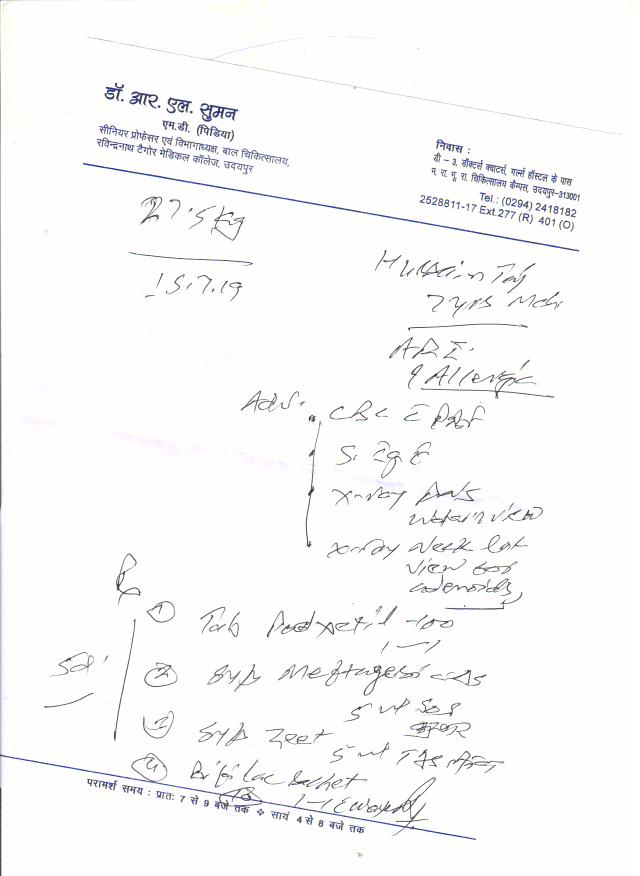 डॉ. आर. एल. सुमन
एम.डी. (पिडिया)
सीनियर प्रोफेसर एवं विभागाध्यक्ष, बाल चिकित्सालय,
रविन्द्रनाथ टैगोर मेडिकल कॉलेज, उदयपुर
निवास :
डी - 3, डॉक्टर्स क्वाटर्स, गर्ल्स हॉस्टल के पास
म. रा. भू. रा. चिकित्सालय कैम्पस, उदयपुर-313001
Tel.: (0294) 2418182
2528811-17 Ext.277 (R) 401 (O)
27.5 kg
15.7.19
Hussain
7 yrs
ARI
? Allergic
Adv.
CBC
S. IgE
X-ray PNS
water's view
X-ray neck lat
view for
adenoids
Rx
5d
① Tab Podxetil -100
1-1
② Syp Meftagesic-DS
5 ml SOS
③ Syp Zeet
5 ml TDS
④ Bifilac Sachet
1-1
परामर्श समय : प्रातः 7 से 9 बजे तक ❖ सायं 4 से 8 बजे तक